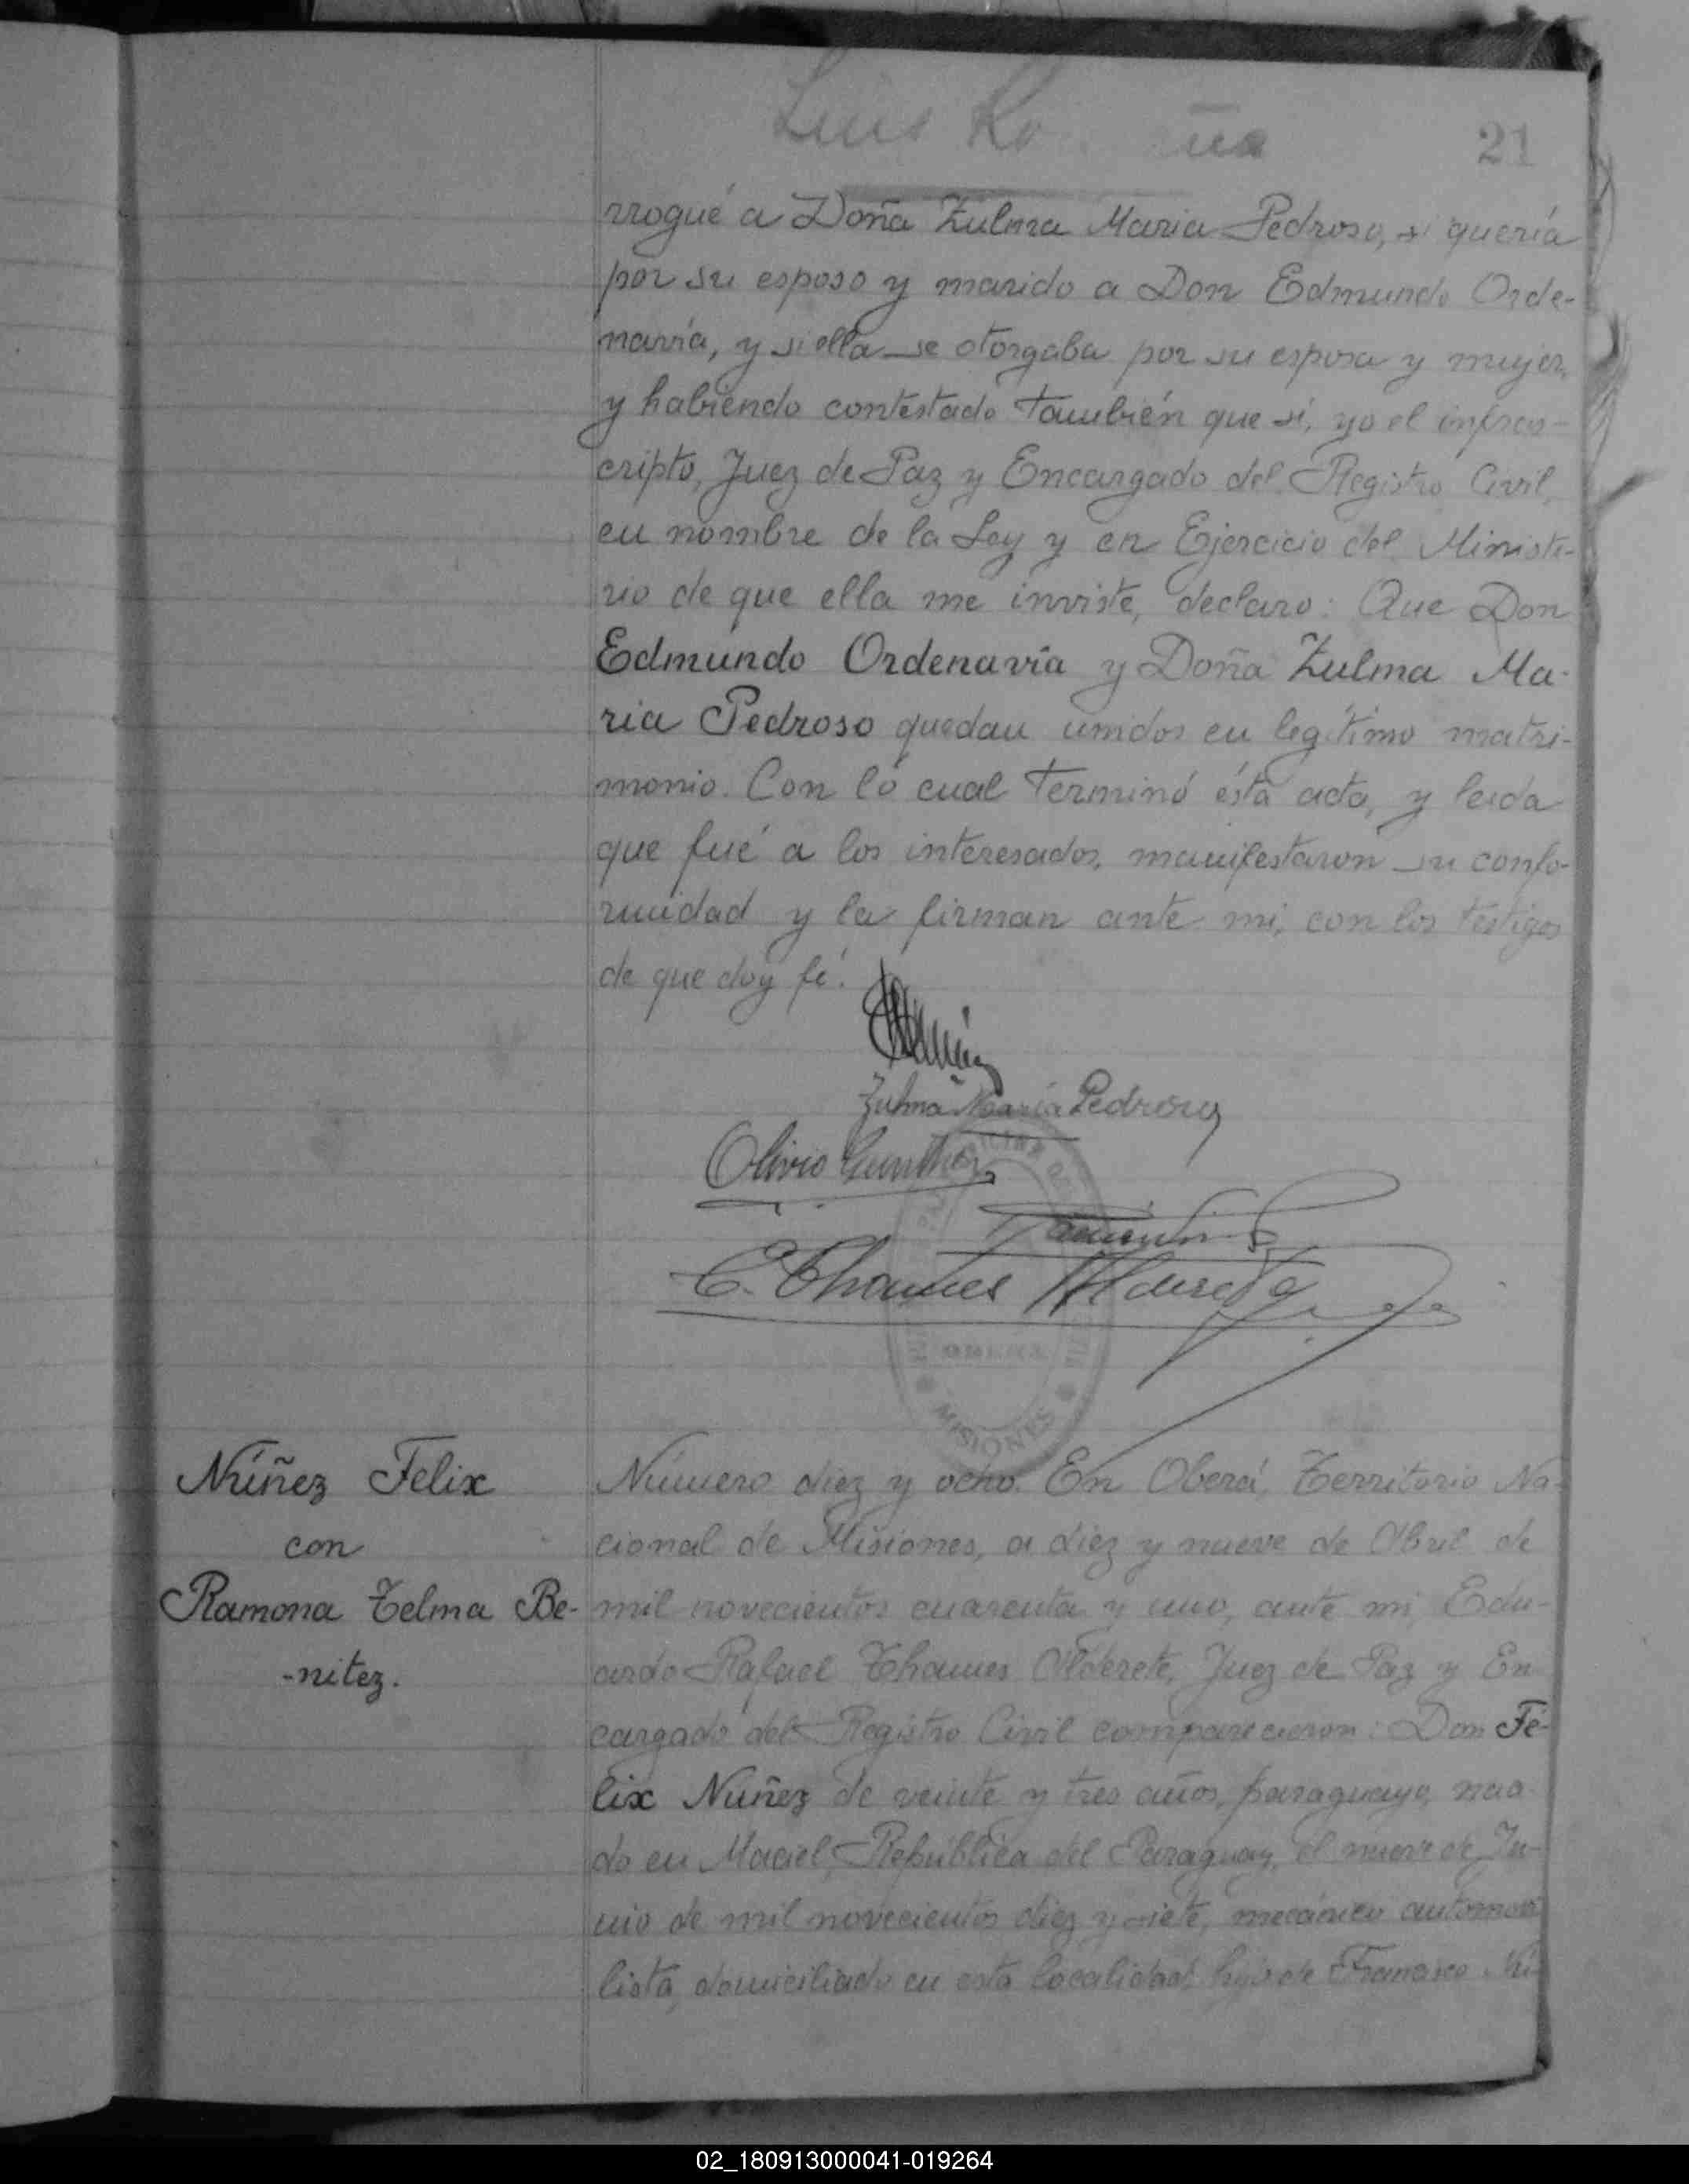 Luis
21
rrogué a Doña Zulma Maria Pedroso, si quería
por su esposo y marido a Don Edmundo Orde-
navía, y si ella se otorgaba por su esposa y mujer,
y habiendo contestado también que sí, yo el infras-
cripto, Juez de Paz y Encargado del Registro Civil,
en nombre de la Ley y en Ejercicio del Ministe-
rio de que ella me inviste, declaro: Que Don
Edmundo Ordenavía y Doña Zulma Ma-
ria Pedroso quedan unidos en legítimo matri-
monio. Con lo cual terminó ésta acta, y leida
que fué a los interesados, manifestaron su confo-
rmidad y la firman ante mi, con los testigos
de que doy fé.
Zulma Maria Pedroso
Olivio
E. Thames Alderete
MISIONES
Núñez Felix
con
Ramona Telma Be-
-nitez.
Número diez y ocho. En Oberá, Territorio Na-
cional de Misiones, a diez y nueve de Abril de
mil novecientos cuarenta y uno, ante mi, Edu-
ardo Rafael Thames Alderete, Juez de Paz y En
cargado del Registro Civil comparecieron: Don Fé-
lix Núñez de veinte y tres años, paraguayo, naci-
do en Maciel, República del Paraguay, el nueve de Ju-
nio de mil novecientos diez y siete, mecánico automovi
lista, domiciliado en esta localidad, hijo de Francisco Nú-
02_180913000041-019264